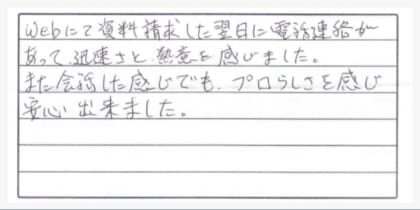 Webにて資料請求した翌日に電話連絡が
あって、迅速さと、熱意を感じました。
また会話した感じでも、プロらしさを感じ
安心出来ました。